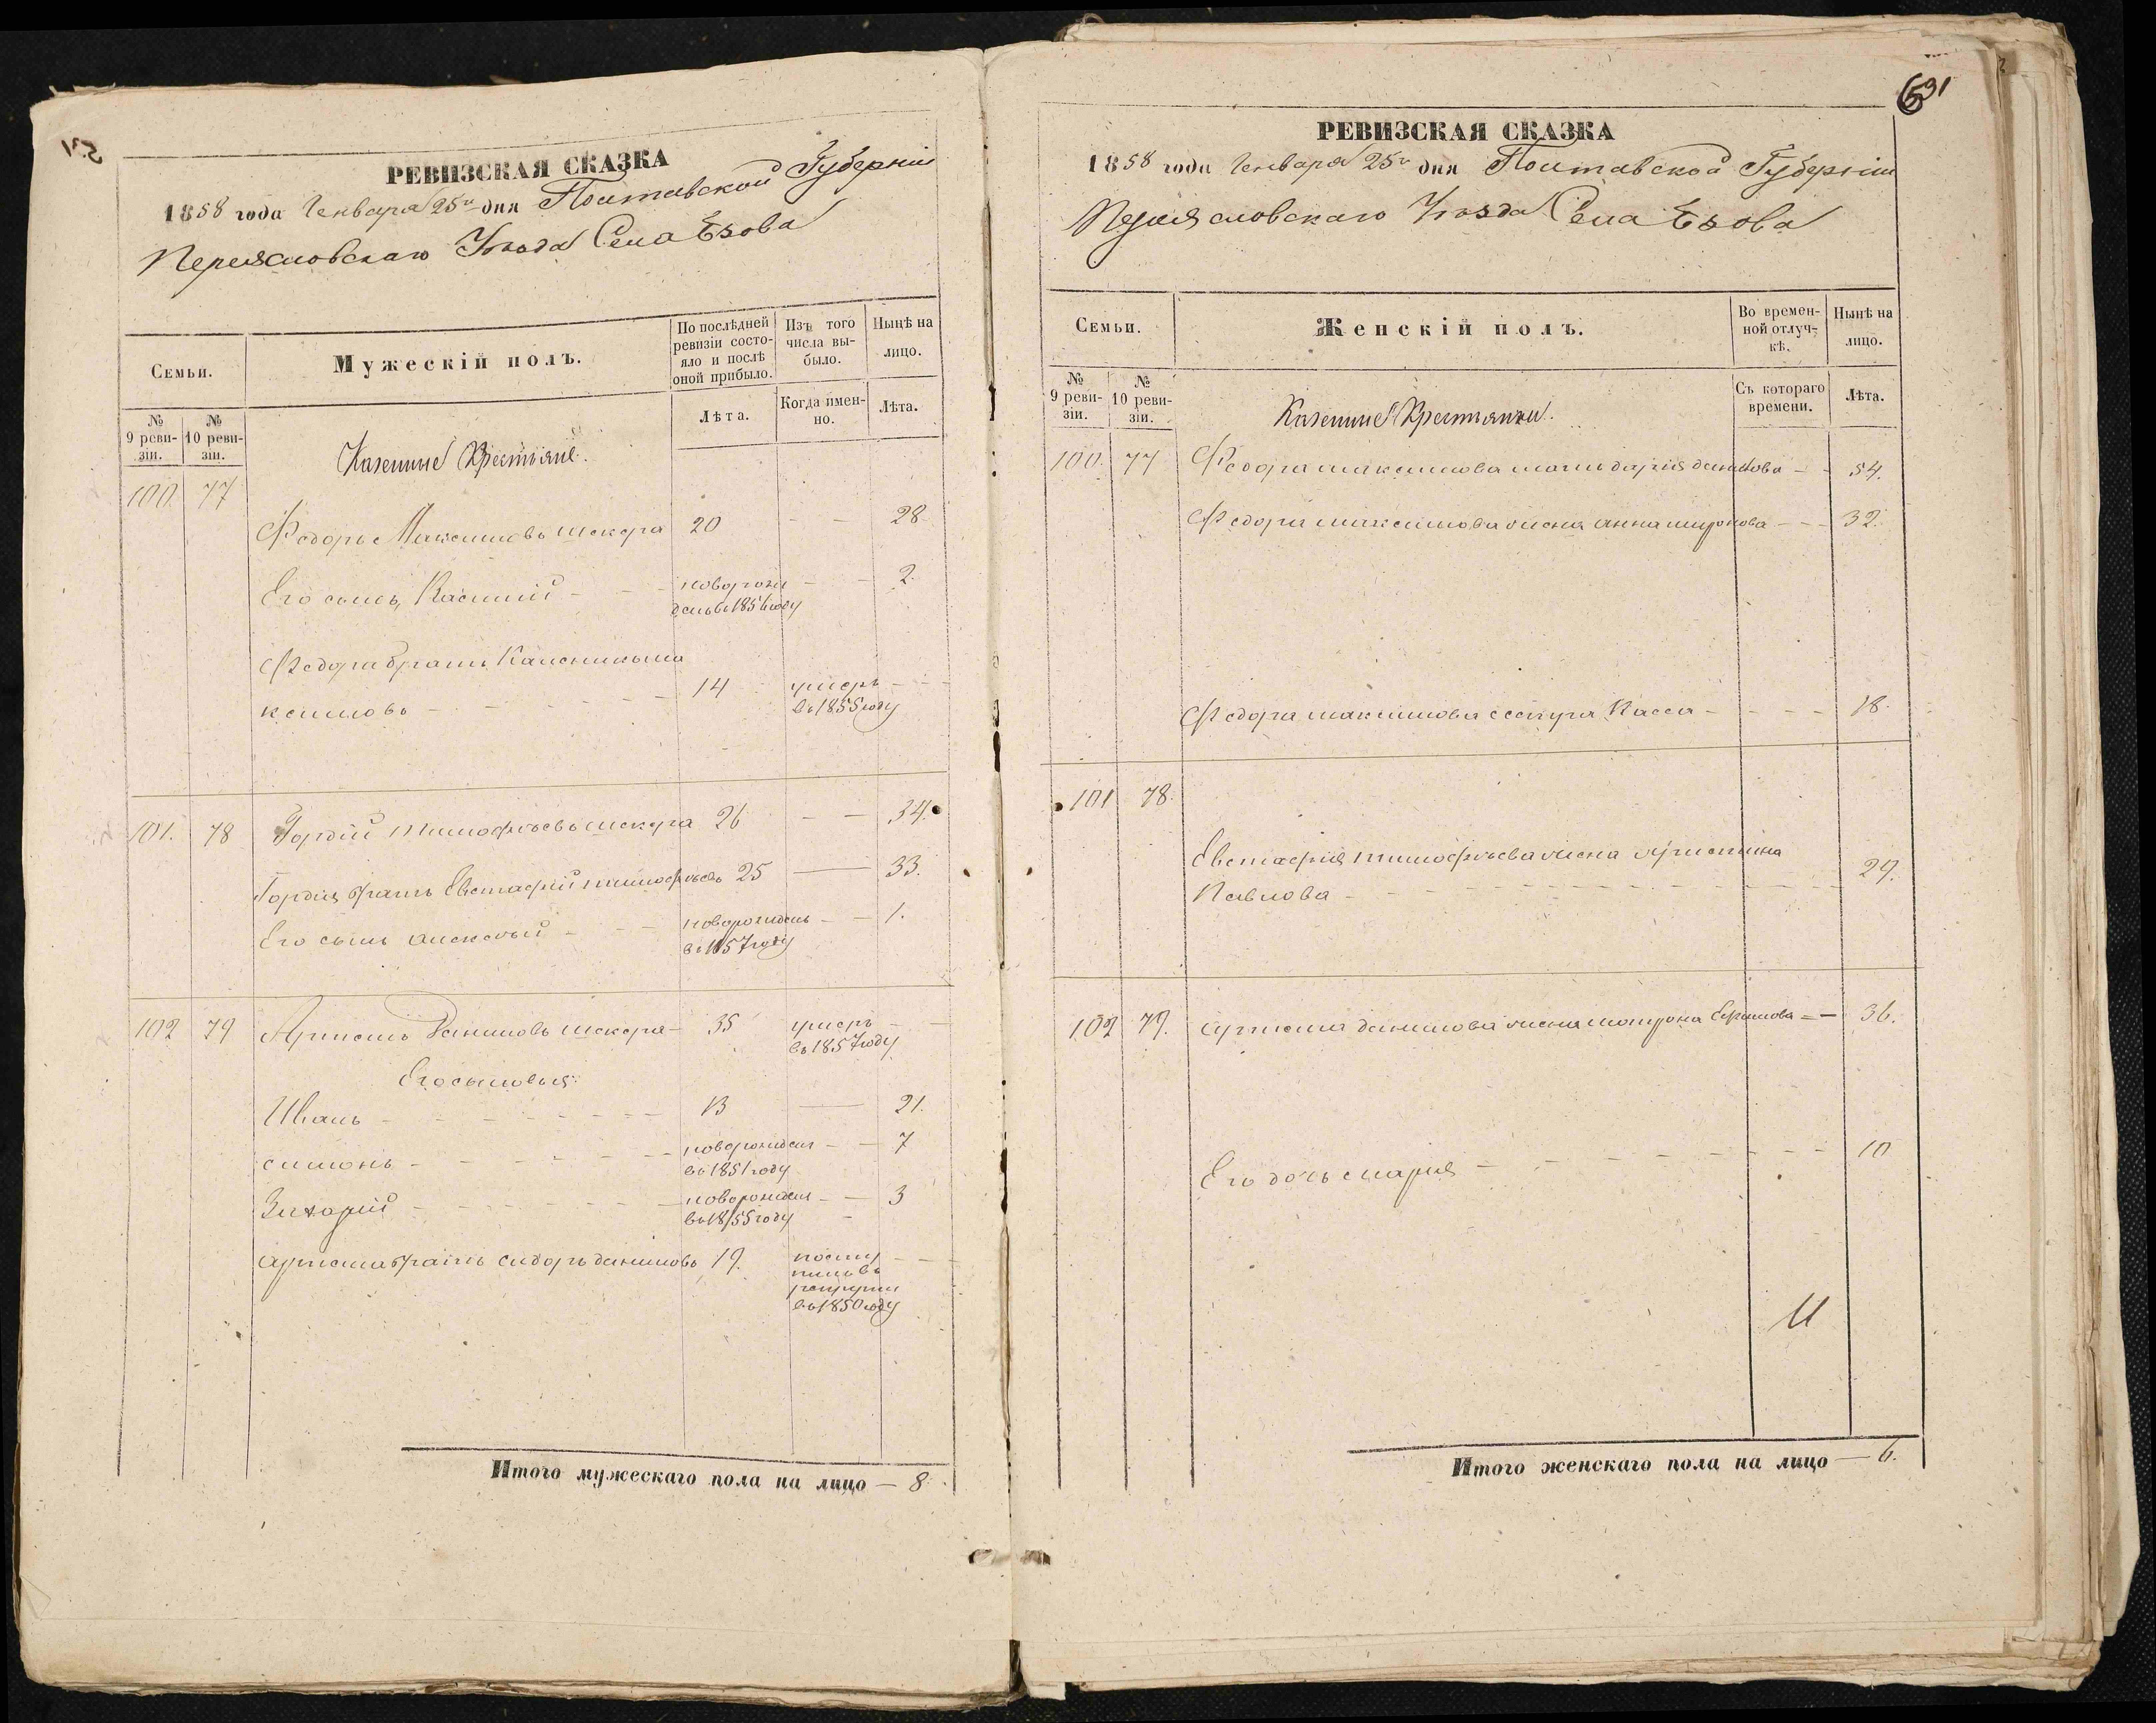 РЕВИЗСКАЯ СКАЗКА
1858 года Генваря 25го дня Полтавской Губерніи
Переясловскаго Уѣзда Села Ezова
Семьи.
Мужескій полъ.
По послѣдней ревизіи состо-
яло и послѣ
оной прибыло.
Изъ того
числа вы-
было.
Нынѣ на
лицо.
№
9 реви-
зіи.
№
10 реви-
зіи.
Лѣта.
Когда имен-
но.
Лѣта.
Казенные Крестьяне.
100. 77
Федоръ Максимовъ Шкура 20 - - 28.
Его сынъ, Касіянъ - - - новорож - - 2.
денъ въ 1856 году
Федора братъ
ксимовъ - - - - 14 умеръ - -
въ 1855 году
101. 78 Гордій Тимофѣевъ шкура 26 - - 34.
Гордія братъ Евстафій тимофѣевъ 25 — 33.
Его сынъ алексѣй - - - новорожденъ - - 1.
въ 1857 году
102 79 Артемъ Даниловъ шкура - 35 умеръ - -
въ 1857 году
Его сыновья:
Иванъ - - - - 13 — 21.
симонъ - - - - новорожденъ - - 7
въ 1851 году
Захарій - - - - новорожденъ - - 3
въ 1855 году
артема братъ сидоръ даниловъ 19. посту - -
пилъ въ
рекруты
въ 1850 году
Итого мужескаго пола на лицо — 8.
РЕВИЗСКАЯ СКАЗКА
1858 года Генваря 25го дня Полтавской Губерніи
Переясловскаго Уѣзда Села
Семьи.
Женскій полъ.
Во времен-
ной отлуч-
кѣ.
Нынѣ на
лицо.
№
9 реви-
зіи.
№
10 реви-
зіи.
Съ котораго
времени.
Лѣта.
Казенные Крестьянки.
100. 77 Федора максимова мати дарія данилова - - 54.
Федора максимова жена анна миронова - - - 32.
Федора максимова сестра Васса - - - - 18.
101 78.
Евстафія тимофѣева жена христина
Павлова - - - - 29.
102 79. артема данилова жена матрона Ефимова - - 36.
Его дочь марія - - - - 10
Итого женскаго пола на лицо — 6.